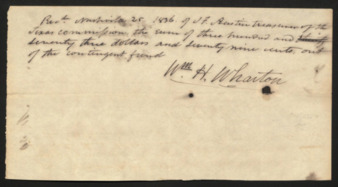 Recd. Nashville 25 1836 of S.F. Austin treasurer of the
Texas commission, the sum of three hundred and
seventy three dollars and seventy nine cents, out
of the contingent fund
Wm H. Wharton